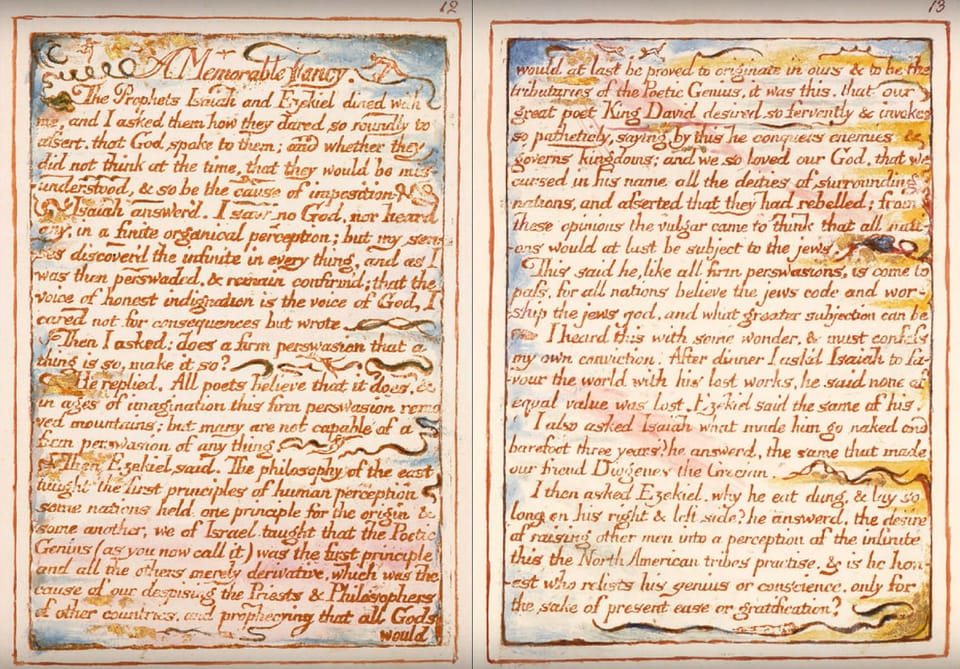 12
A Memorable Fancy.
The Prophets Isaiah and Ezekiel dined with
me, and I asked them how they dared so roundly to
assert. that God spoke to them; and whether they
did not think at the time, that they would be mis-
understood, & so be the cause of imposition.
Isaiah answer'd. I saw no God, nor heard
any, in a finite organical perception; but my sen-
ses discover'd the infinite in every thing, and as I
was then perswaded. & remain confirm'd; that the
voice of honest indignation is the voice of God, I
cared not for consequences but wrote.
Then I asked: does a firm perswasion that a
thing is so, make it so?
He replied. All poets believe that it does, &
in ages of imagination this firm perswasion remo
ved mountains; but many are not capable of a
firm perswasion of any thing
Then Ezekiel said. The philosophy of the east
taught the first principles of human perception
some nations held one principle for the origin &
some another, we of Israel taught that the Poetic
Genius (as you now call it) was the first principle
and all the others merely derivative, which was the
cause of our despising the Priests & Philosophers
of other countries, and prophecying that all Gods
would
13
would at last be proved to originate in ours & to be the
tributaries of the Poetic Genius, it was this. that our
great poet King David desired so fervently & invokes
so patheticly, saying by this he conquers enemies &
governs kingdoms; and we so loved our God, that we
cursed in his name all the deities of surrounding
nations, and asserted that they had rebelled; from
these opinions the vulgar came to think that all nati-
-ons would at last be subject to the jews.
This said he, like all firm perswasions, is come to
pass, for all nations believe the jews code and wor-
-ship the jews god, and what greater subjection can be
I heard this with some wonder, & must confess
my own conviction. After dinner I ask'd Isaiah to fa-
-vour the world with his lost works, he said none of
equal value was lost. Ezekiel said the same of his.
I also asked Isaiah what made him go naked and
barefoot three years? he answerd, the same that made
our friend Diogenes the Grecian
I then asked Ezekiel. why he eat dung, & lay so
long on his right & left side? he answerd, the desire
of raising other men into a perception of the infinite
this the North American tribes practise. & is he hon-
-est who resists his genius or conscience. only for
the sake of present ease or gratification?